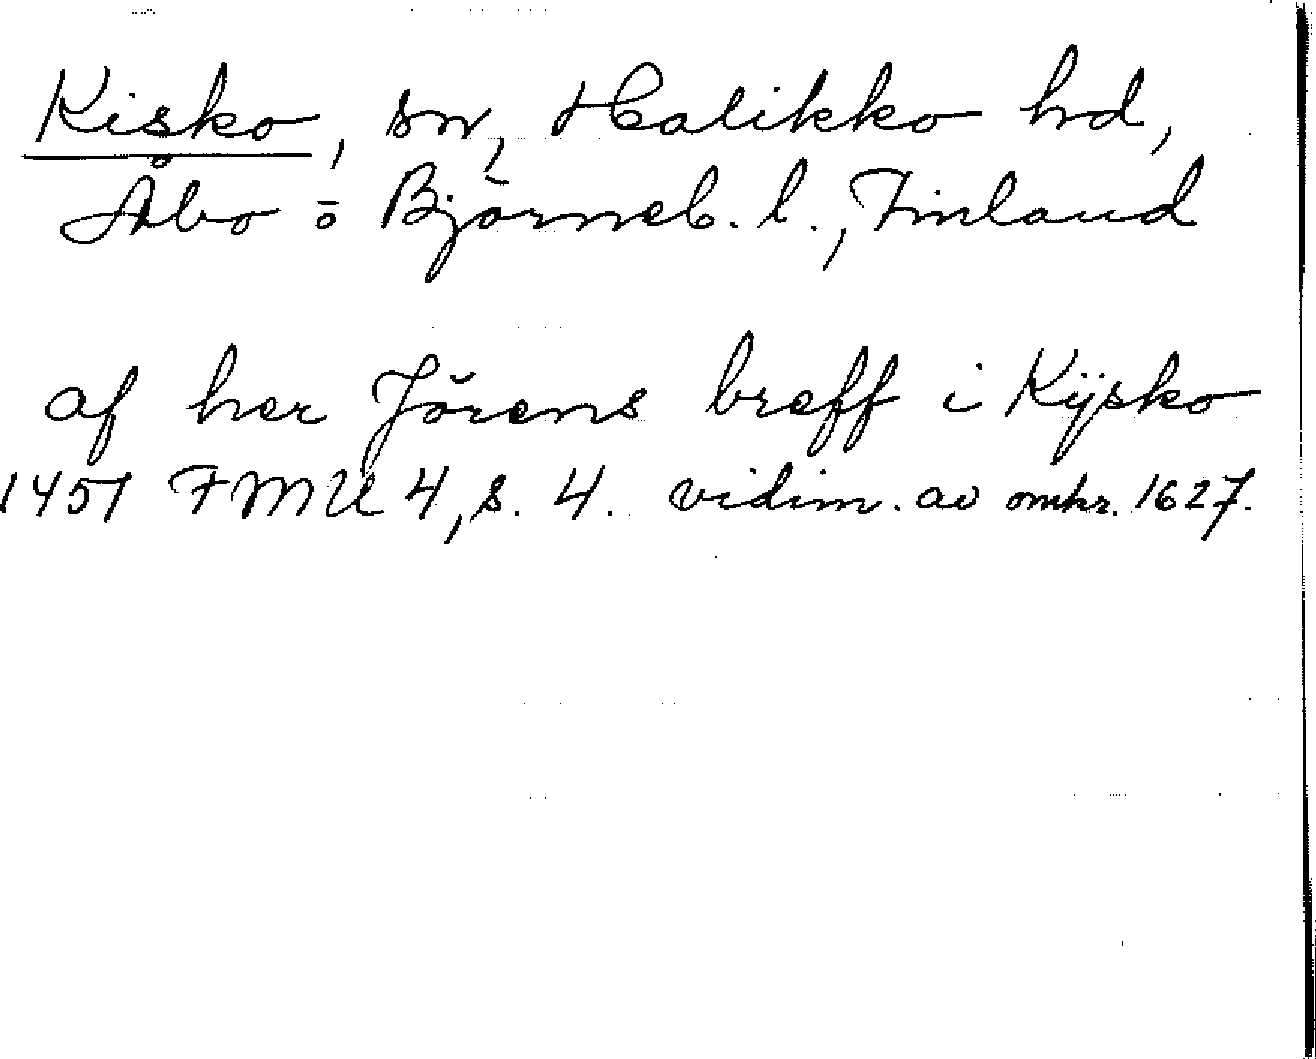 Kisko, sn, Halikko hd,
Åbo o Björneb. l., Finland
af her Jörens breff i Kÿsko
1451 FMU 4, s. 4. vidim. av omkr. 1627.